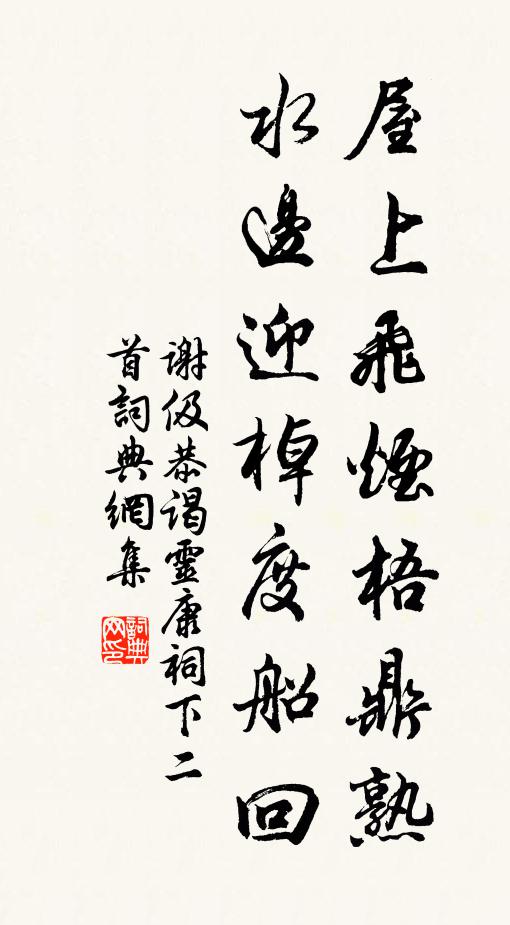 屋上飛煙梧鼎熟
水邊迎棹度船回
謝伋恭謁靈康祠下二
首詞典網集
詞典
网印